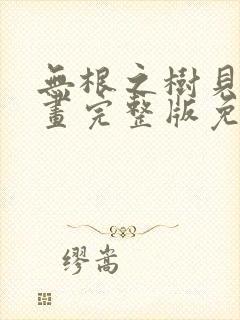 無根之樹見
畫完整版免
繆嵩